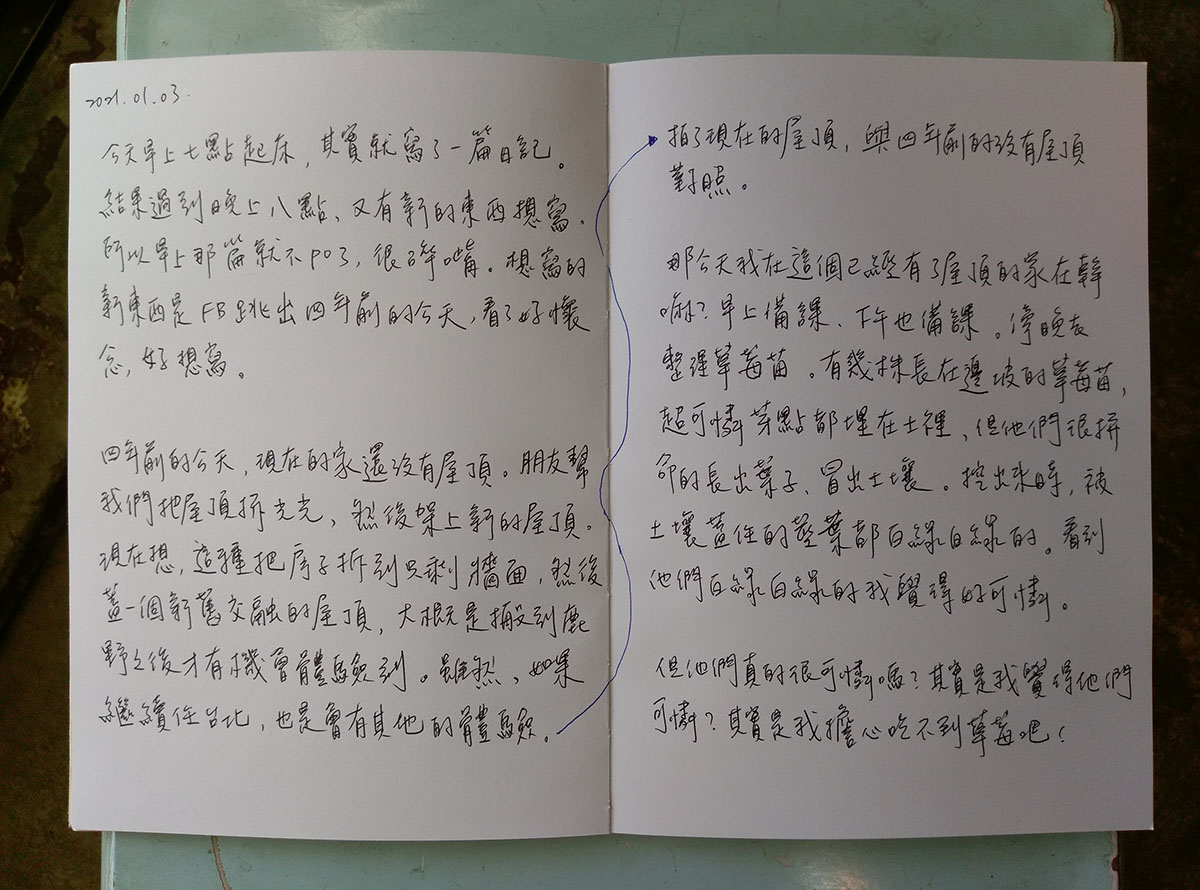 2021.01.03.
今天早上七點起床，其實就寫了一篇日記。
結果過到晚上八點、又有新的東西想寫．
所以早上那篇就不PO了，很碎嘴。想寫的
新東西是FB跳出四年前的今天，看了好懷
念，好想寫。
四年前的今天，現在的家還沒有屋頂。朋友幫
我們把屋頂拆光光、然後架上新的屋頂．
現在想，這種把房子拆到只剩牆面，然後
蓋一個新舊交融的屋頂，大概是搬到鹿
野之後才有機會體驗到。雖然、如果
繼續住台北，也是會有其他的體驗。
拍了現在的屋頂，與四年前的沒有屋頂
對照。
那今天我在這個已經有了屋頂的家在幹
嘛？早上備課、下午也備課。傍晚去
整理草莓苗。有幾株長在邊坡的草莓苗，
超可憐芽點都埋在土裡、但他們很拼
命的長出葉子、冒出土壤。挖出來時，被
土壤蓋住的莖葉都白綠白綠的。看到
他們白綠白綠的我覺得好可憐。
但他們真的很可憐嗎？其實是我覺得他們
可憐？其實是我擔心吃不到草莓吧！